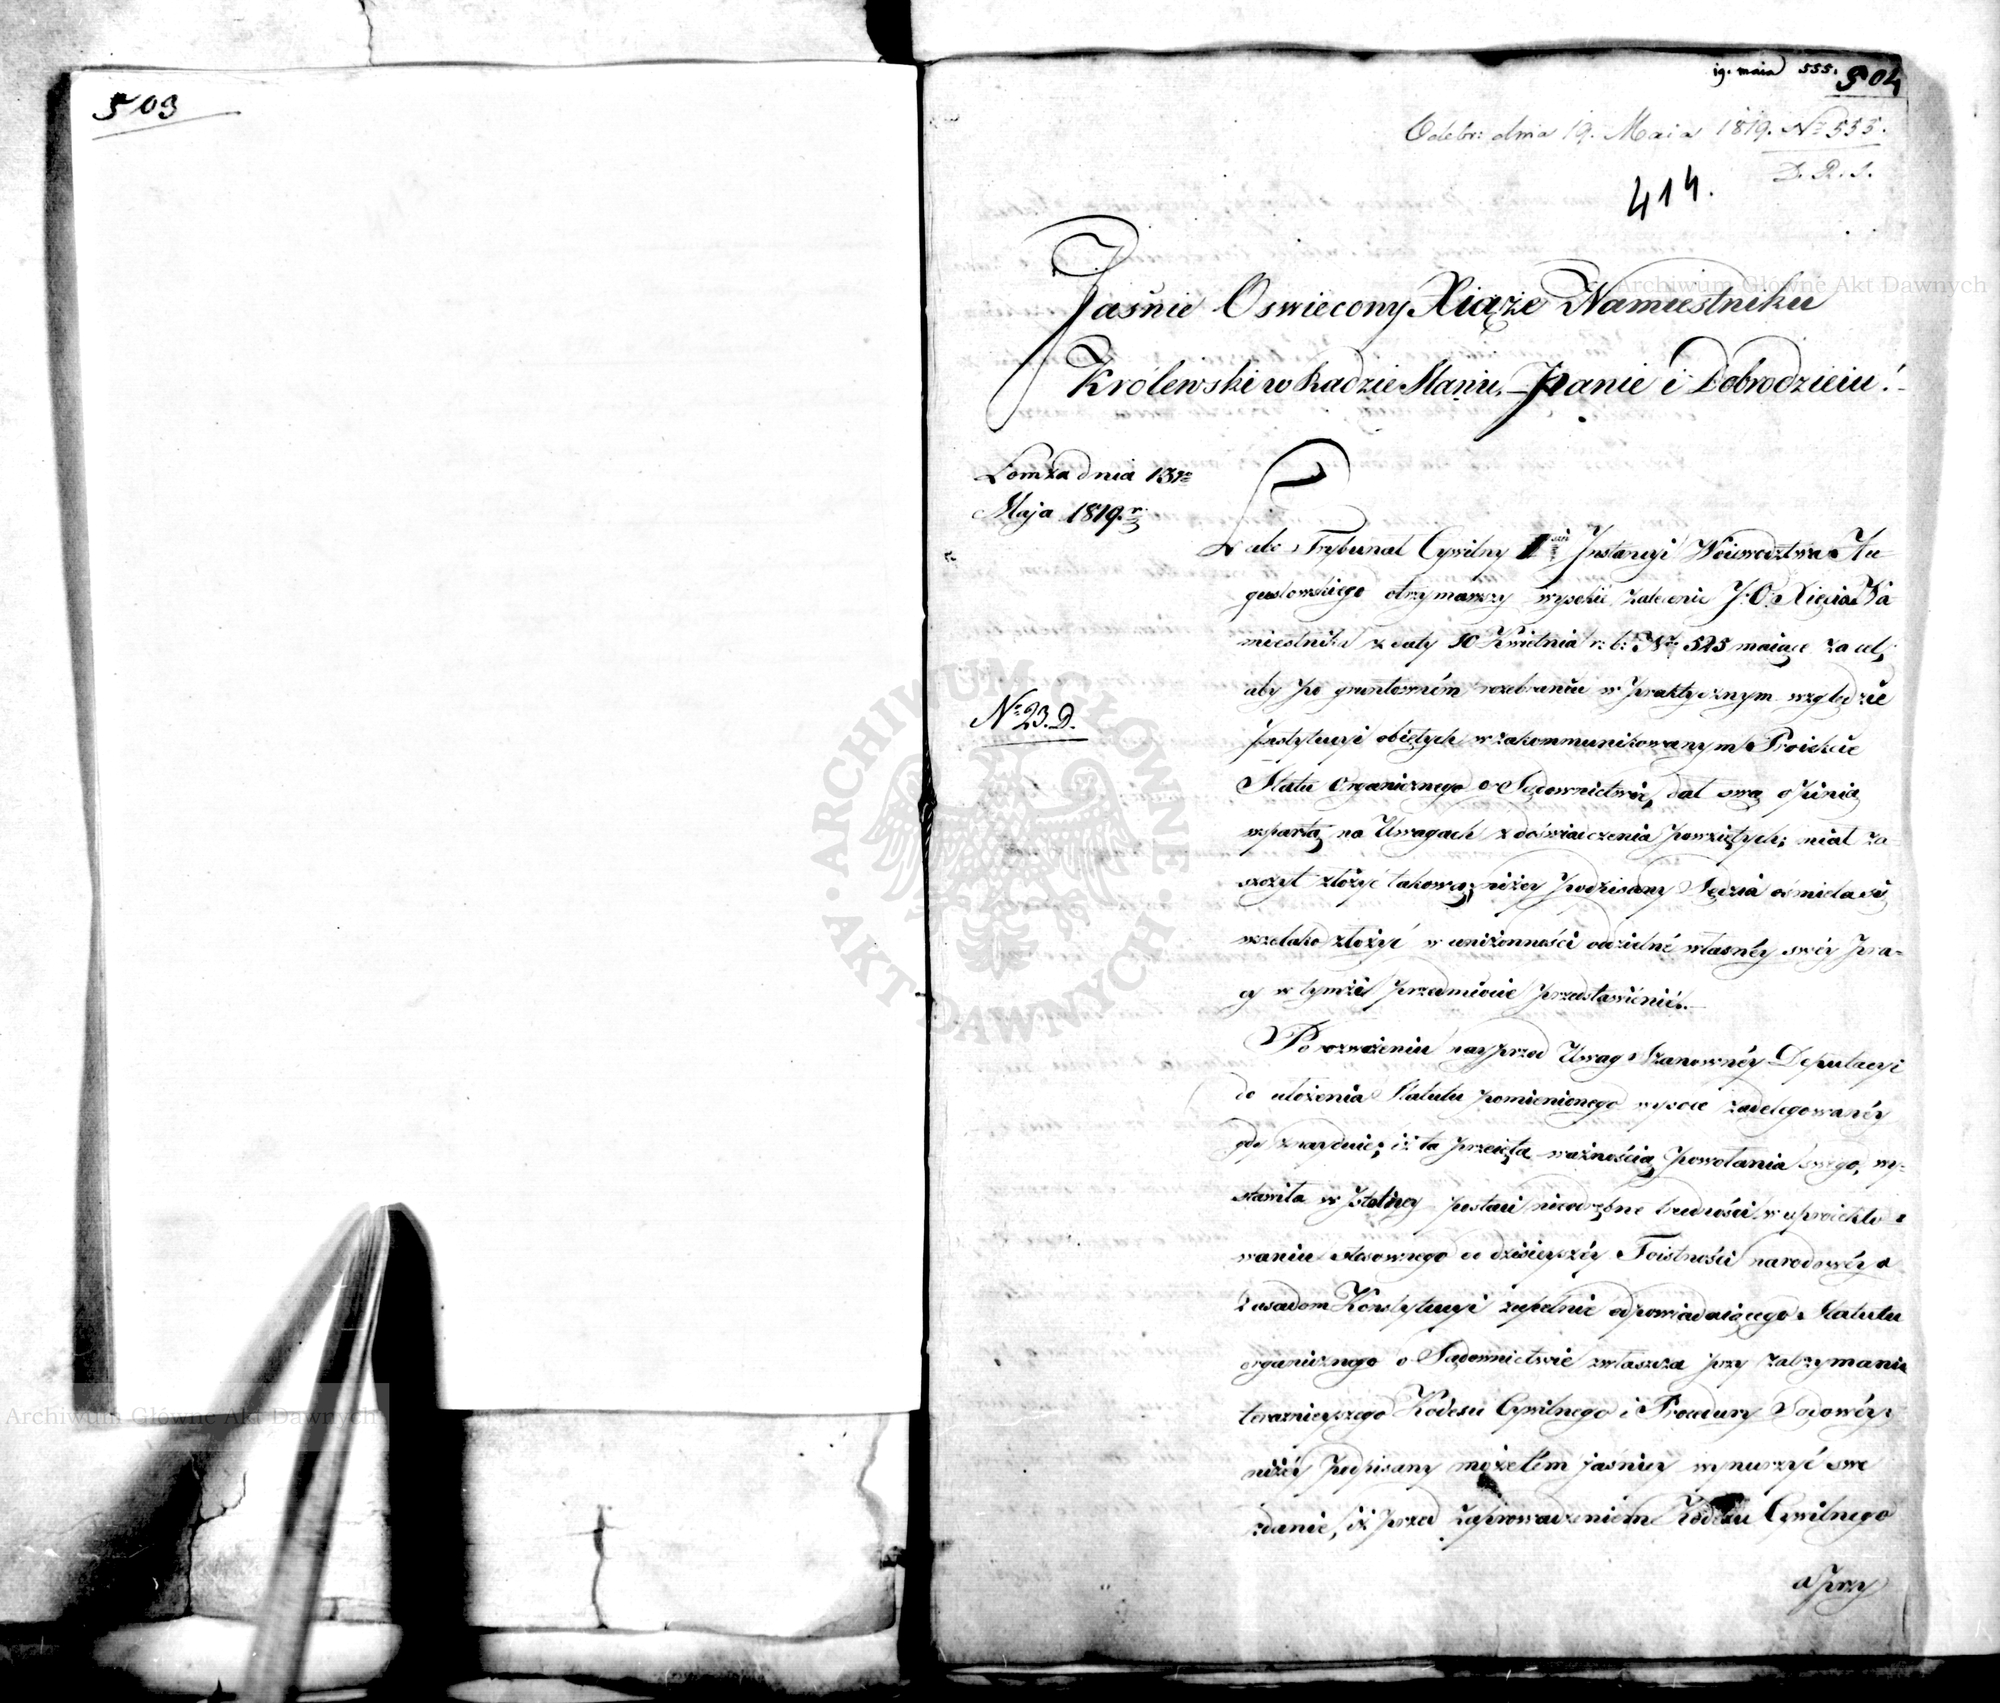 503
19. maia 555. 504
Odebr: dnia 19. Maia 1819. Nr 555.
D. R. S.
414.
Jaśnie Oswiecony Xiąże Namiestniku
Królewski w Radzie Stanu, Panie i Dobrodzieiu!
Łomża dnia 13go
Maja 1819. r.
Lubo Trybunał Cywilny I Instancyi Woiewodztwa Au-
gustowskiego otrzymawszy wysokie zalecenie J. O. Xięcia Na
miestnika z daty 10 Kwietnia r: b: No 525 maiące za cel,
aby po gruntowném rozebraniu w praktycznym względzie
Nr 23. D.
Instytucyi obiętych w zakommunikowanym Proiekcie
Statu Organicznego o Sądownictwie, dał swą opinią
wspartą na Uwagach z doświadczenia powziętych; miał za-
szczyt złożyć takową; niżey podpisany Sędzia ośmiela się
wszelako złożyć w uniżonności oddzielné własnéy swéy pra-
cy w tymże przedmiocie przedstawienié.
Po rozważeniu nayprzód Uwag Szanownéy Deputacyi
do ułożenia Statutu pomienionego wysoce zadelegowanéy
gdy znayduie; iż ta przeięta ważnością powołania swego, wy-
stawiła w postaci nieodrębne trudności w uproiekto-
waniu stosownego do dzisieyszéy Istności narodowéy a
zasadom Konstytucyi zupełnie odpowiadaiącego Statutu
organicznego o Sądownictwie zwłaszcza przy zatrzymaniu
teraznieyszego Kodexu Cywilnego i Procedury Sądowéy;
niżéy podpisany możełem jaśniey wynurzyć swe
zdanie, iż przed zaprowadzeniem Kodexu Cywilnego
a przy
ARCHIWUM GŁÓWNE AKT DAWNYCH
Archiwum Główne Akt Dawnych
Archiwum Główne Akt Dawnych